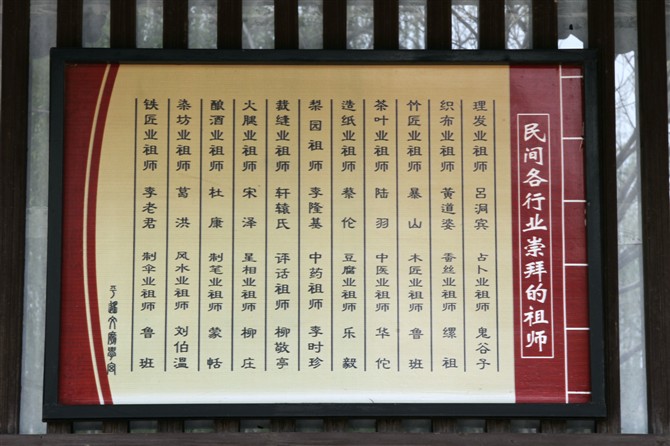 民间各行业崇拜的祖师
理发业祖师 吕洞宾 占卜业祖师 鬼谷子
织布业祖师 黄道婆 蚕丝业祖师 缧祖
竹匠业祖师 暴山 木匠业祖师 鲁班
茶叶业祖师 陆羽 中医业祖师 华佗
造纸业祖师 蔡伦 豆腐业祖师 乐毅
梨园祖师 李隆基 中药祖师 李时珍
裁缝业祖师 轩辕氏 评话祖师 柳敬亭
火腿业祖师 宋泽 星相业祖师 柳庄
酿酒业祖师 杜康 制笔业祖师 蒙恬
染坊业祖师 葛洪 风水业祖师 刘伯温
铁匠业祖师 李老君 制伞业祖师 鲁班